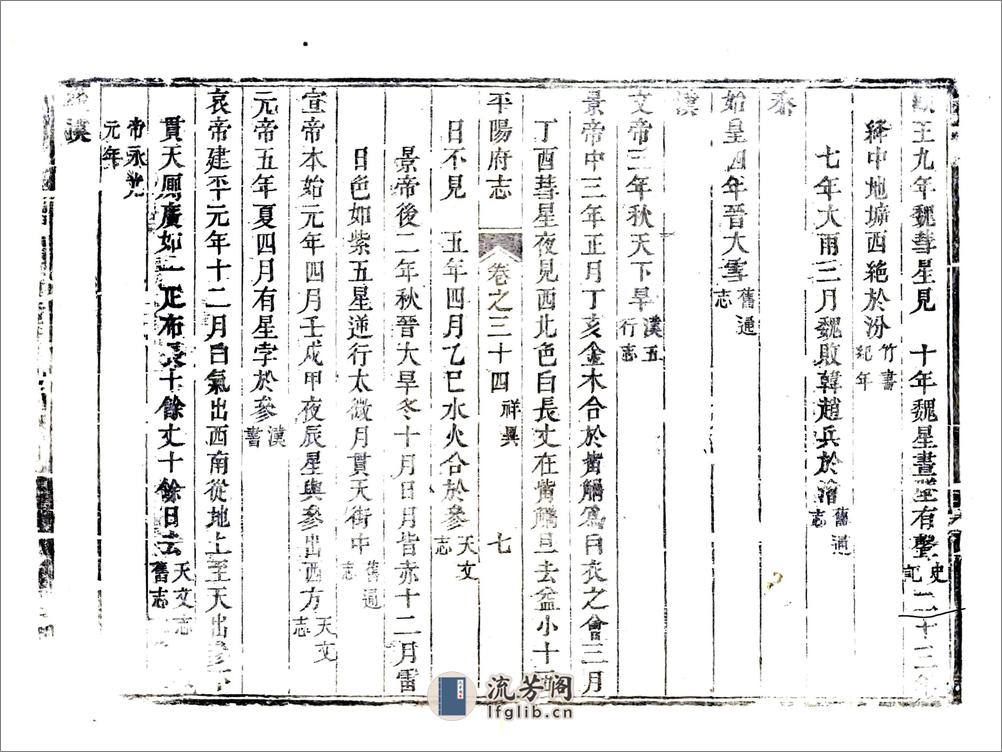 王九年魏彗星見　十年魏星晝墜有聲史記二十三年
絳中地墉西絶於汾竹書紀年
七年大雨三月魏敗韓趙兵於澮舊通志
秦
始皇四年晉大雪舊通志
漢
文帝三年秋天下旱漢五行志
景帝中三年正月丁亥金木合於觜觿爲白衣之會三月
丁酉彗星夜見西北色白長丈在觜觿且去益小十五
平陽府志　卷之三十四祥異　七
日不見　五年四月乙巳水火合於參天文志
景帝後二年秋晉大旱冬十月日月皆赤十二月雷
日色如紫五星逆行太微月貫天街中舊通志
宣帝本始元年四月壬戌甲夜辰星與參出西方天文志
元帝五年夏四月有星孛於參漢書
哀帝建平元年十二月白氣出西南從地上至天出參下
貫天厠廣如一疋布長十餘丈十餘日去天文志舊志
帝永元年
漢
流芳阁
lfglib.cn